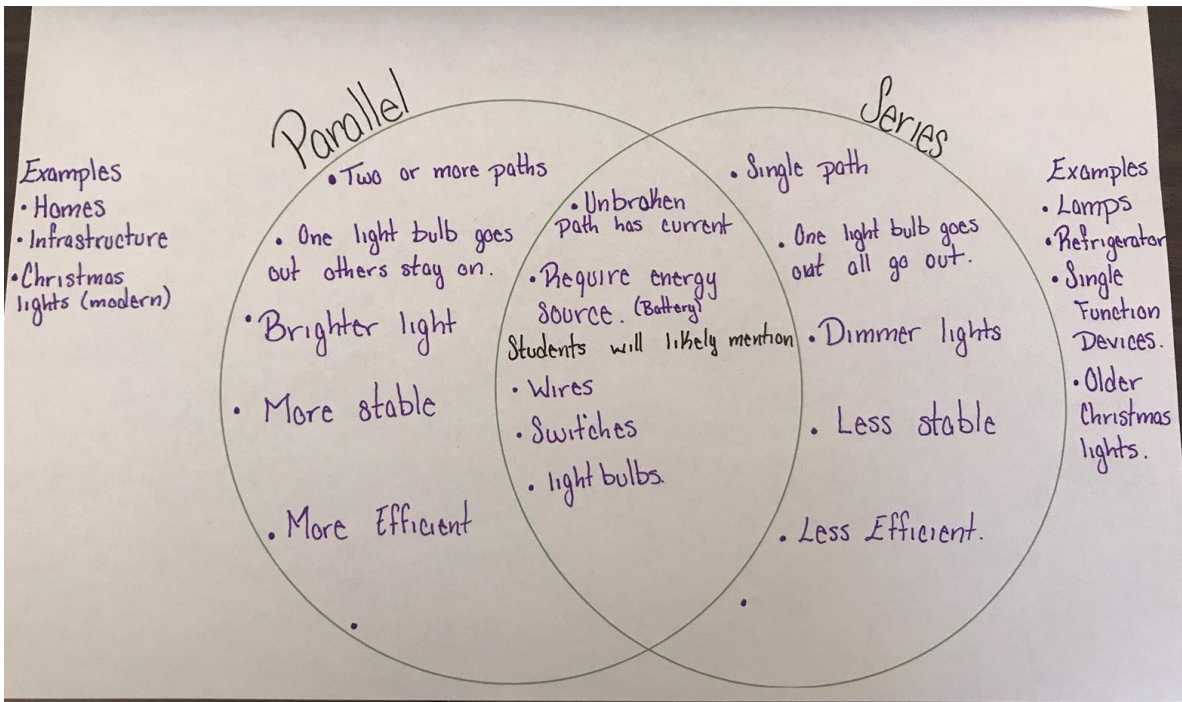 Parallel
Series
Examples
• Homes
• Infrastructure
• Christmas
lights (modern)
• Two or more paths
• One light bulb goes
out others stay on.
• Brighter light
• More stable
• More Efficient
•
• Unbroken
path has current
• Require energy
source. (Battery)
Students will likely mention
• Wires
• Switches
• light bulbs.
• Single path
• One light bulb goes
out all go out.
• Dimmer lights
• Less stable
• Less Efficient.
•
Examples
• Lamps
• Refrigerator
• Single
Function
Devices.
• Older
Christmas
lights.